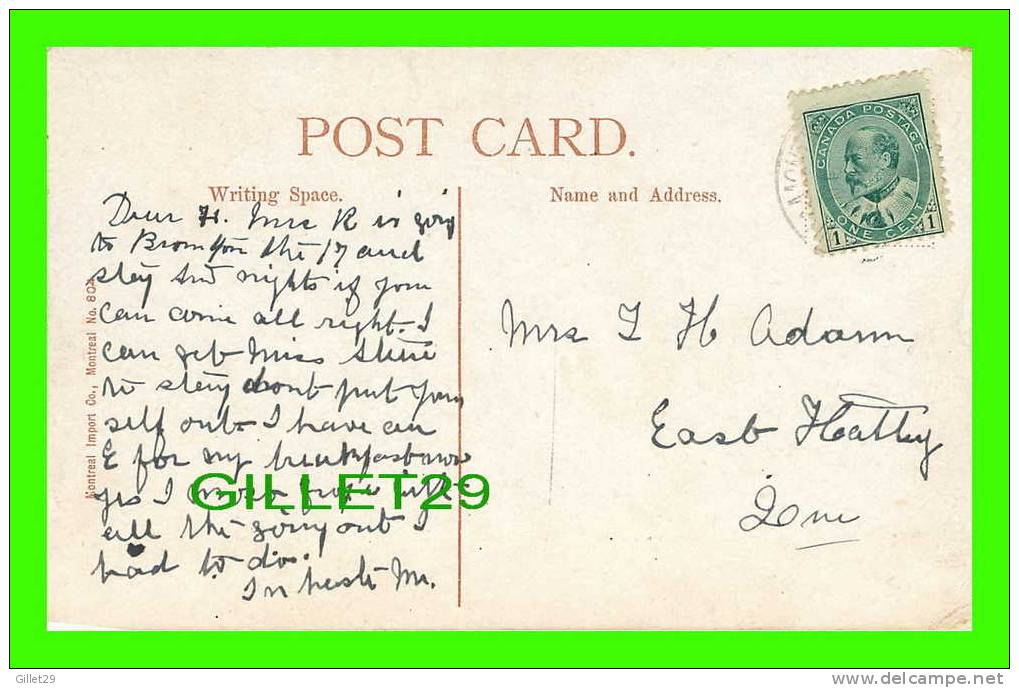 POST CARD.
Writing Space.
Name and Address.
CANADA POSTAGE
1 ONE CENT 1
Dear H. Mrs R is going
to Brompton the 17 and
stay nights if you
can come all right. I
can get Miss
to stay dont put your
self out I have an
E for my breakfast now
yes I
all the going out I
had to do.
In haste M.
Mrs H Adam
East
Montreal Import Co., Montreal No. 804
GILLET29
Gillet29
www.delcampe.net